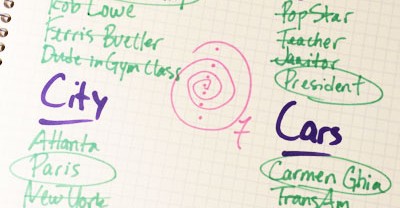 Rob Lowe
Ferris Bueller
Dude in Gym Class
City
Atlanta
Paris
New York
7
Pop Star
Teacher
Janitor
President
Cars
Carmen Ghia
TransAm